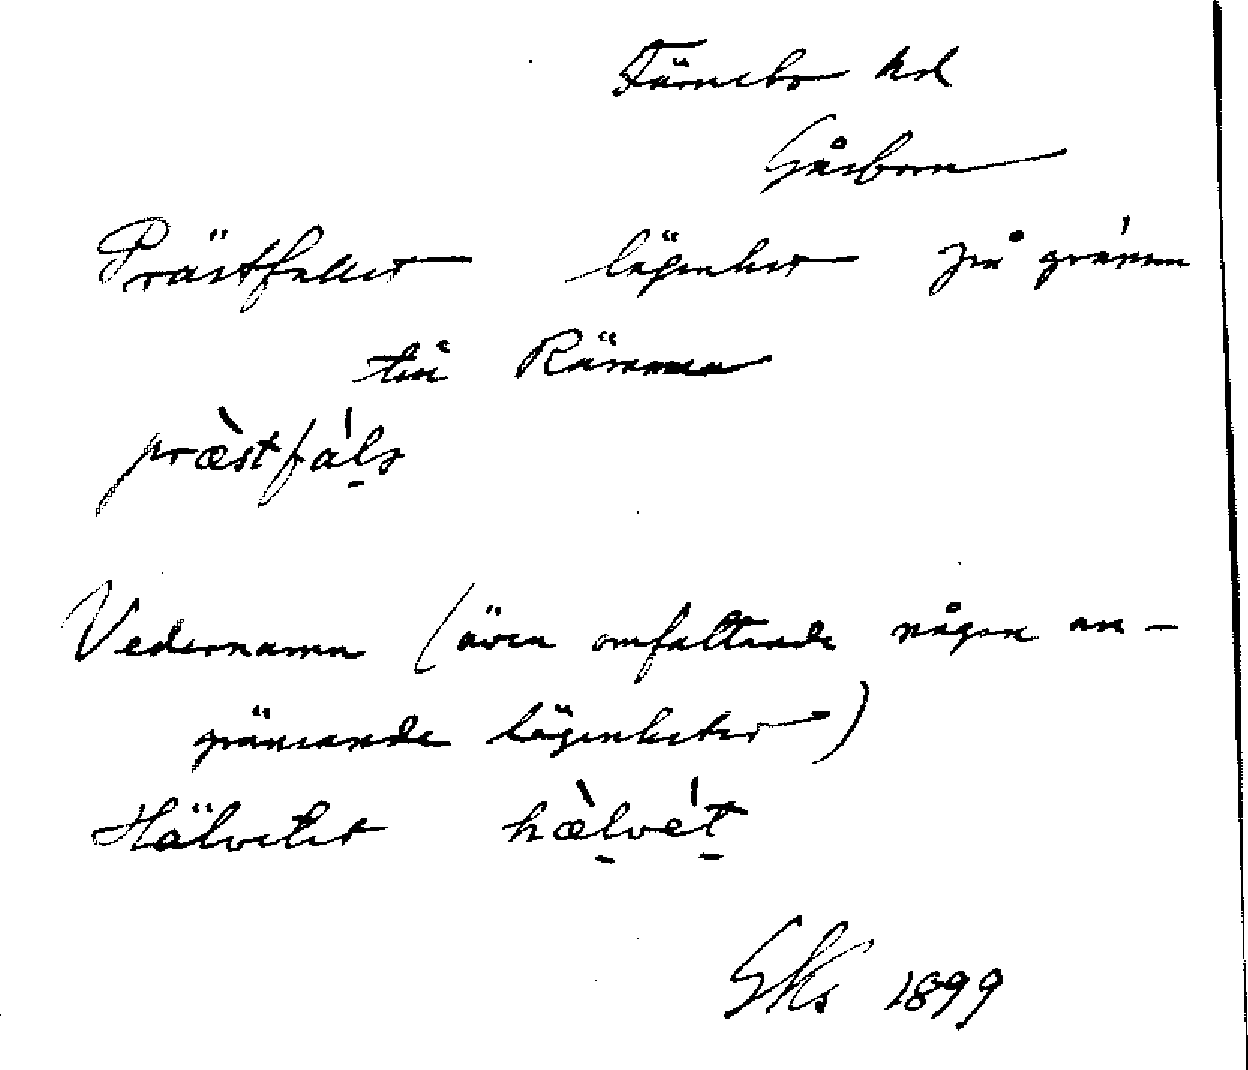 Färnebo hd
Gåsborn
Prästfallet lägenhet på gränsen
till Rämmen
præ̀stfáls
Vedernamn (även omfattande någon an-
gränsande lägenheter)
Hälvetet hæ̀lvét
GKs 1899